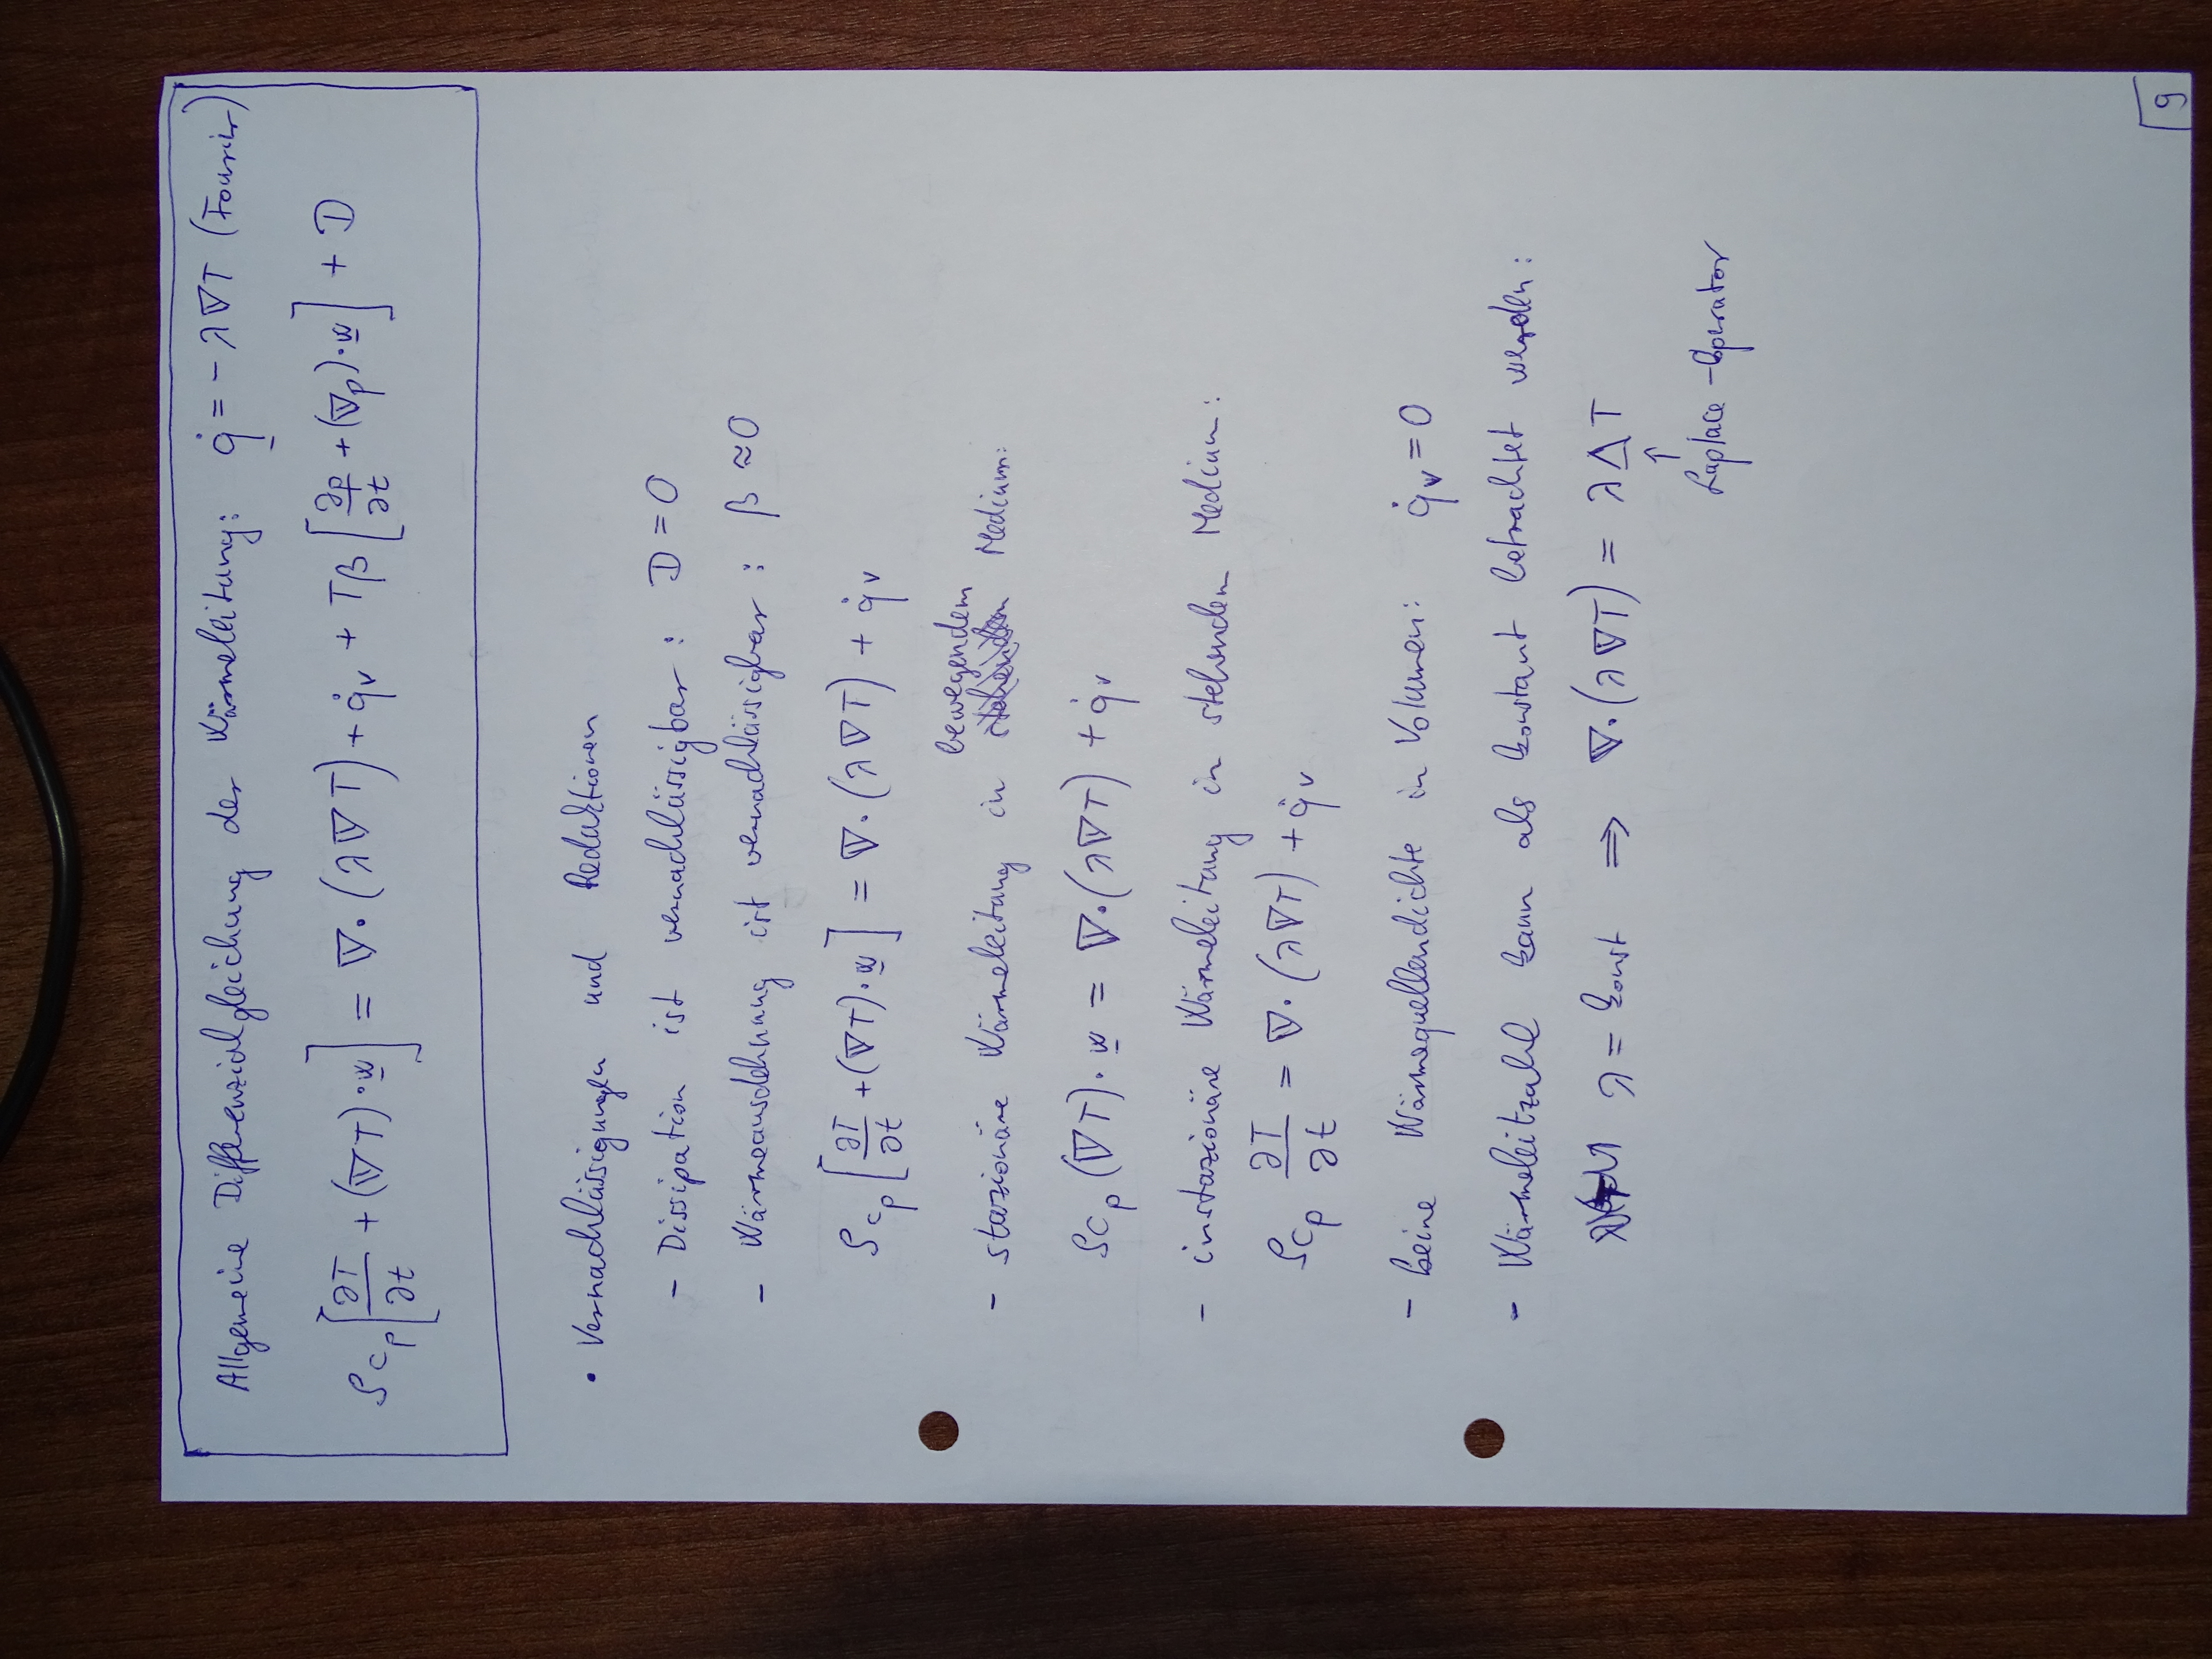 Allgemeine Differenzialgleichung der Wärmeleitung: q̇ = - λ ∇T (Fourier)
ρc_p [∂T/∂t + (∇T)·w] = ∇·(λ∇T) + q̇_v + Tβ [∂p/∂t + (∇p)·w] + D
• Vernachlässigungen und Reduktionen
- Dissipation ist vernachlässigbar: D = 0
- Wärmeausdehnung ist vernachlässigbar: β ≈ 0
ρc_p [∂T/∂t + (∇T)·w] = ∇·(λ∇T) + q̇_v
- stazionäre Wärmeleitung in bewegendem Medium:
ρc_p (∇T)·w = ∇·(λ∇T) + q̇_v
- instazionäre Wärmeleitung in stehenden Medium:
ρc_p ∂T/∂t = ∇·(λ∇T) + q̇_v
- keine Wärmequellendichte in Volumen: q̇_v = 0
- Wärmeleitzahl kann als konstant betrachtet werden:
λ = konst ⇒ ∇·(λ∇T) = λΔT
↑
Laplace-Operator
9